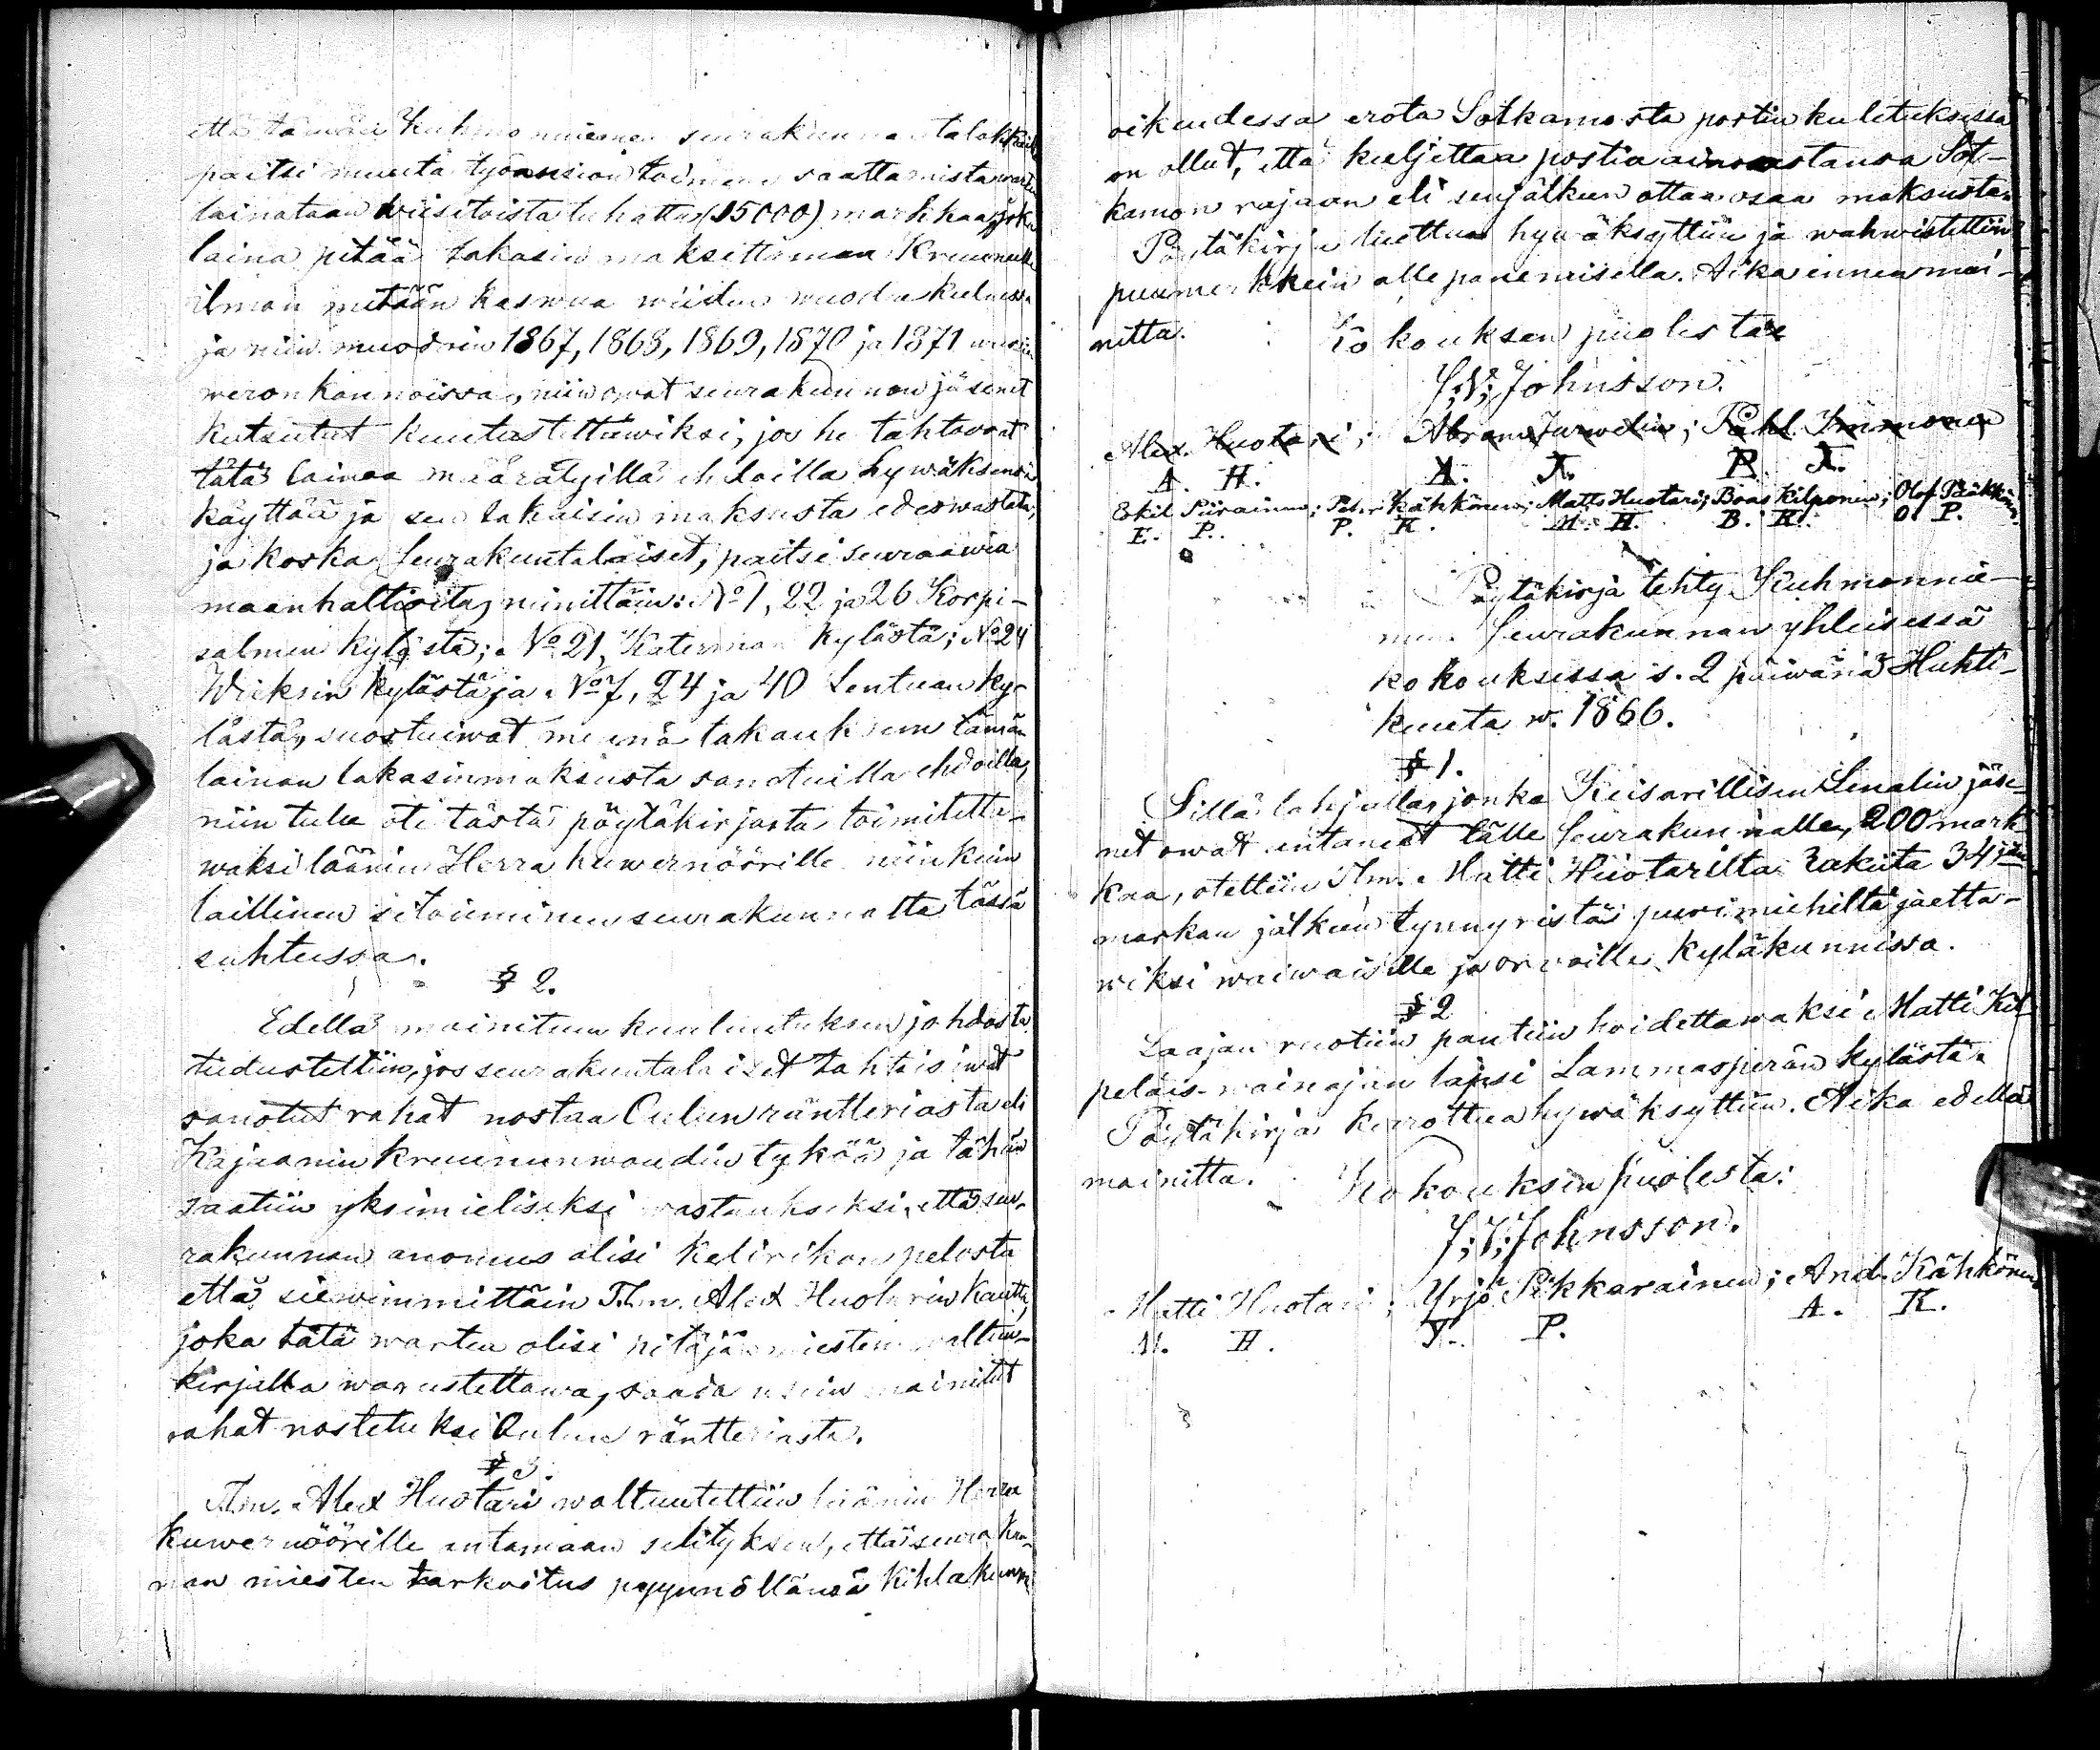 että tämän Kuhmoniemen seurakunnan talokkaille
paitsi muuta työansion toimeen saattamista warten
lainataan wiisitoista tuhatta (15000) markkaa, joka
laina pitää takasin maksettaman Kruunulle
ilman mitään kaswua wiiden wuoden kuluessa
ja niin wuosien 1867, 1868, 1869, 1870 ja 1871
weronkannoissa, niin owat seurakunnan jäsenet
kutsutut kuulusteltawiksi, jos he tahtowat
tätä lainaa määrätyillä ehdoilla hywäksensä
käyttää ja sen takaisin maksusta edeswastata;
ja koska Seurakuntalaiset, paitsi seuraawia
maanhaltioita, nimittäin: No 1, 22 ja 26 Korpi-
salmen kylästä; No 21, Katerman kylästä; No 24
Wieksin kylästä ja No 7, 24 ja 40 Lentuan ky-
lästä, suostuiwat menemään takaukseen tämän
lainan takasinmaksusta sanotuilla ehdoilla,
niin tulee ote tästä pöytäkirjasta toimitetta-
waksi läänin Herra kuwernöörille niin kuin
laillinen sitoumuinen seurakunnalta tässä
suhteessa.
§ 2.
Edellä mainitun kuulutuksen johdosta
tiedusteltiin, jos seurakuntalaiset tahtoisiwat
sanotut rahat nostaa Oulun ränttteriasta eli
Kajaanin kruununwoudin tyköä ja tähän
saatiin yksimieliseksi wastaukseksi, että seu-
rakunnan anomus olisi kelirikon pelosta
että siewimmittäin Tlm. Alex Huotarin kautta,
joka tätä warten olisi pitäjän miesten waltuu-
kirjalla warustettawa, saada usein mainitut
rahat nostetuksi Oulun räntteriasta.
§ 3.
Tlm. Alex Huotari waltuutettiin läänin Herra
kuwernöörille antamaan selityksen, että seurakun-
nan miesten tarkoitus pyynnöllänsä kihlakunnan
oikeudessa erota Sotkamosta postin kuletuksessa
on ollut, että kuljettaa postia ainoastansa Sot-
kamon rajaan eli senjälkeen ottaa osaa maksusta.
Pöytäkirja luettua hywäksyttiin ja wahwistettiin
puumerkkein alle panemisella. Aika ennen mai-
nitta. Kokouksen puolesta
J; V; Johnsson.
Alex. Huotari; Abram Juwelin; Påhl Immonen
A. H. A. J. P. I.
Eskil Piirainen; Petter Kähkönen; Matts Huotari; Boas Kilponen; Olof Pääkkönen
E. P. P. K. M. H. B. K. O P.
Pöytäkirja tehty Kuhmonnie-
men Seurakunnan yhteisessä
kokouksessa s. 2 päiwänä Huhti-
kuuta w. 1866.
§ 1.
Sillä lahjalla, jonka Keisarillisen Senatin jäse-
net owat antaneet tälle Seurakunnalle, 200 mark-
kaa, otettiin Tlm. Matti Huotarilta rukiita 34
markan jälkeen tynnyristä puumiehiltä jaetta-
wiksi waiwaisille ja orwoille kyläkunnissa.
§ 2
Laajan ruotiin pantiin hoidettawaksi Matti Kil-
peläis-wainajan lapsi Lammasperän kylästä.
Pöytäkirja kerrottua hywäksyttiin. Aika edellä
mainitta. Kokouksen puolesta:
J; V; Johnsson.
Matti Huotari; Yrjö Pikkarainen; And. Kähkönen
M. H. Y. P. A. K.